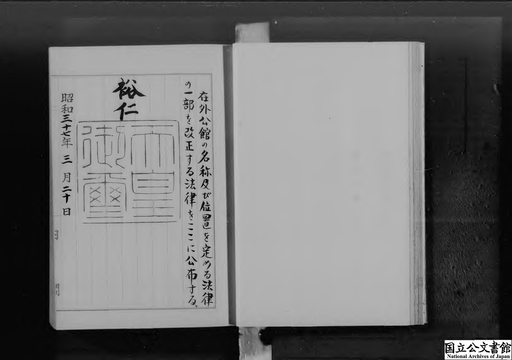 在外公館の名称及び位置を定める法律
の一部を改正する法律をここに公布する。
裕仁
天皇
御璽
昭和三十七年三月二十日
国立公文書館
National Archives of Japan